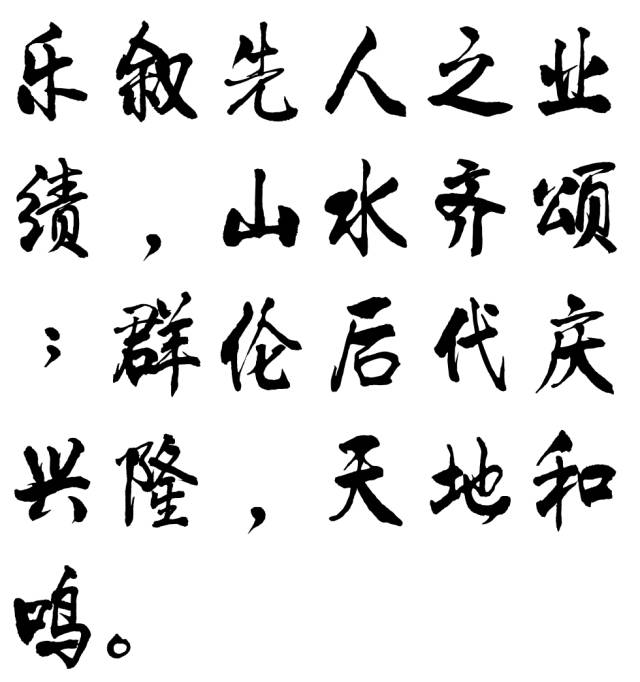 乐叙先人之业
绩，山水齐颂
；群伦后代庆
兴隆，天地和
鸣。